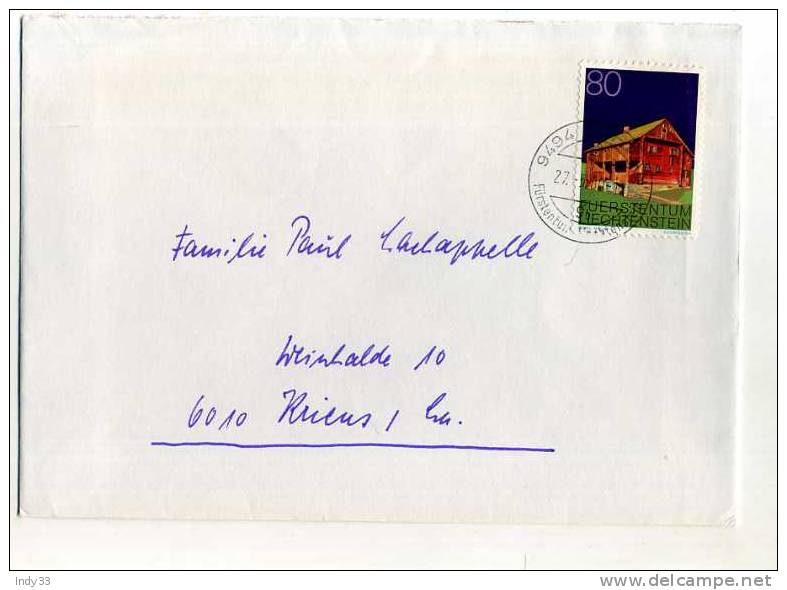 80
9494
27.
Fürstentum
FUERSTENTUM
LIECHTENSTEIN
Familie Paul Lachappelle
Weinhalde 10
6010 Kriens / Lu.
Indy33
www.delcampe.net